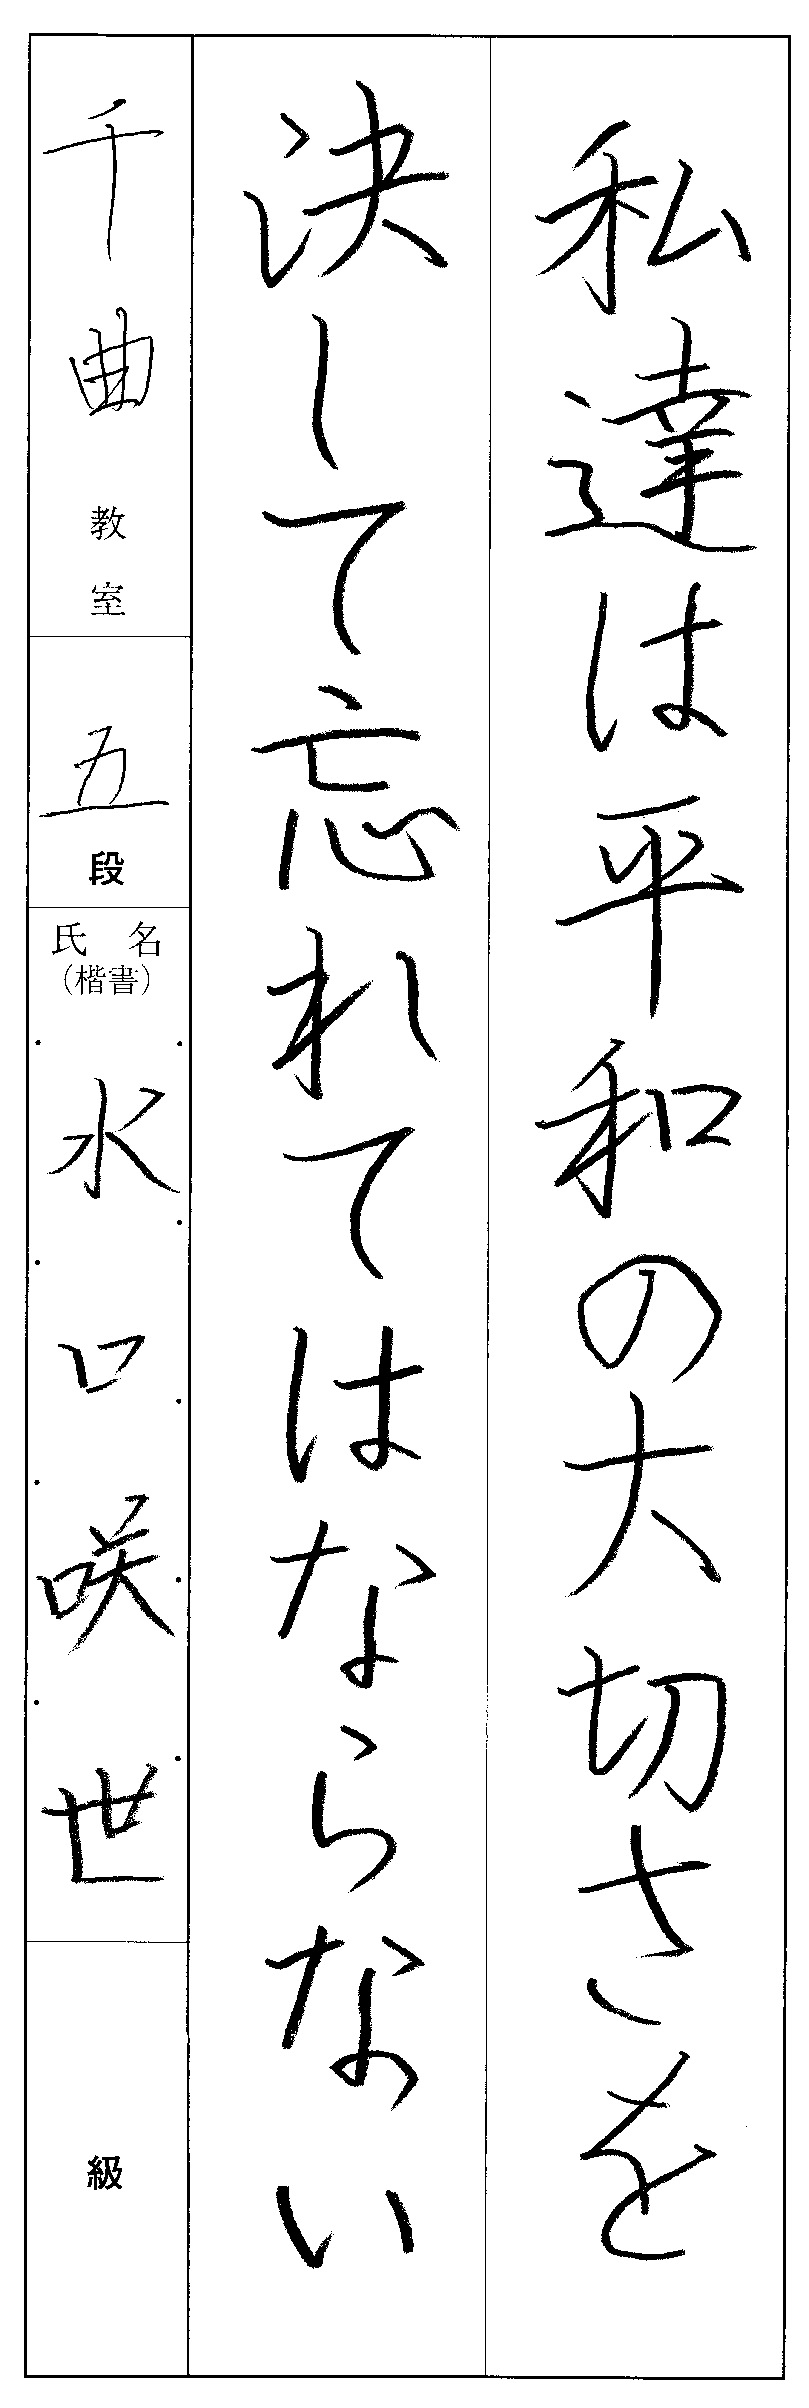 私達は平和の大切さを
決して忘れてはならない
千曲教室
五段
氏名
（楷書）
水口咲世
級